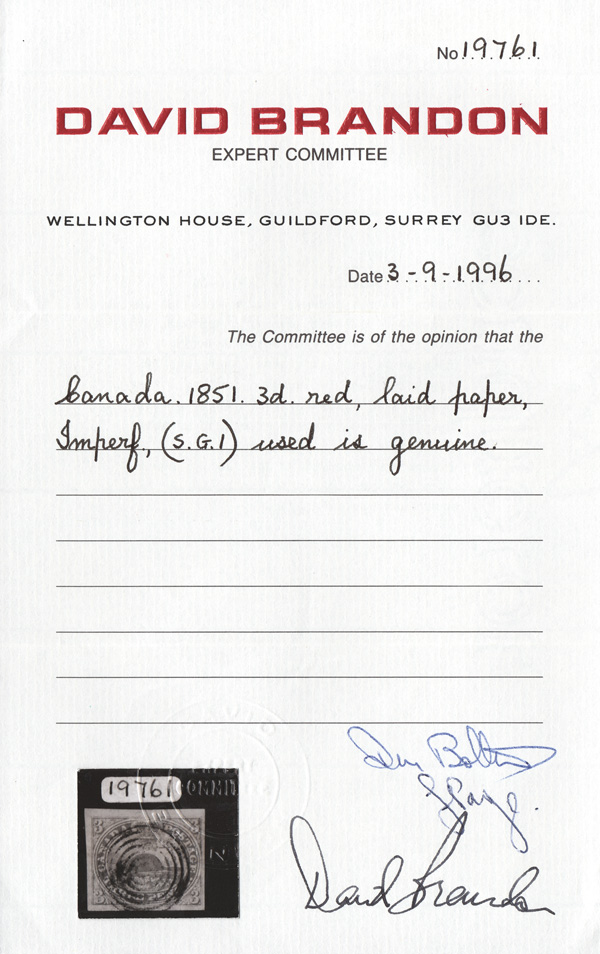 No 19761
DAVID BRANDON
EXPERT COMMITTEE
WELLINGTON HOUSE, GUILDFORD, SURREY GU3 IDE.
Date 3-9-1996
The Committee is of the opinion that the
Canada. 1851. 3d. red, laid paper,
Imperf., (S.G.1) used is genuine.
19761
David Brandon